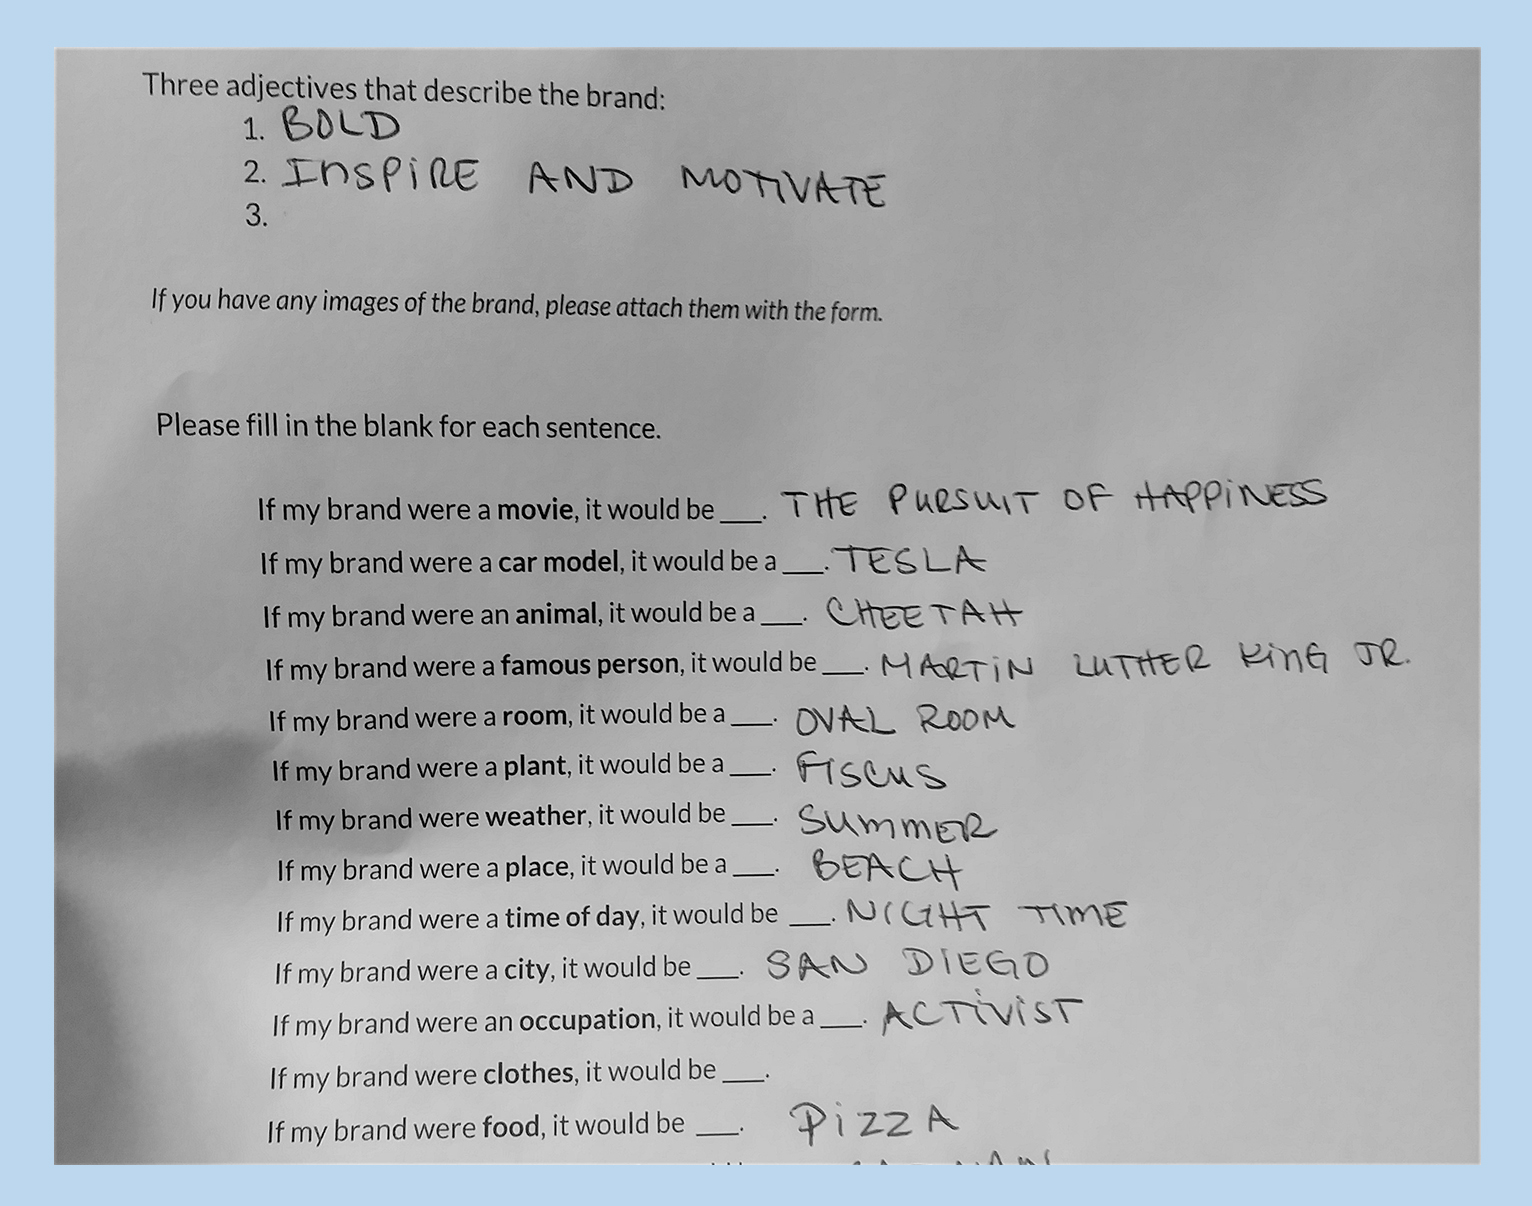 Three adjectives that describe the brand:
1. BOLD
2. INSPIRE AND MOTIVATE
3.
If you have any images of the brand, please attach them with the form.
Please fill in the blank for each sentence.
If my brand were a movie, it would be ___. THE PURSUIT OF HAPPINESS
If my brand were a car model, it would be a ___. TESLA
If my brand were an animal, it would be a ___. CHEETAH
If my brand were a famous person, it would be ___. MARTIN LUTHER KING JR.
If my brand were a room, it would be a ___. OVAL ROOM
If my brand were a plant, it would be a ___. FISCUS
If my brand were weather, it would be ___. SUMMER
If my brand were a place, it would be a ___. BEACH
If my brand were a time of day, it would be ___. NIGHT TIME
If my brand were a city, it would be ___. SAN DIEGO
If my brand were an occupation, it would be a ___. ACTIVIST
If my brand were clothes, it would be ___.
If my brand were food, it would be ___. PIZZA